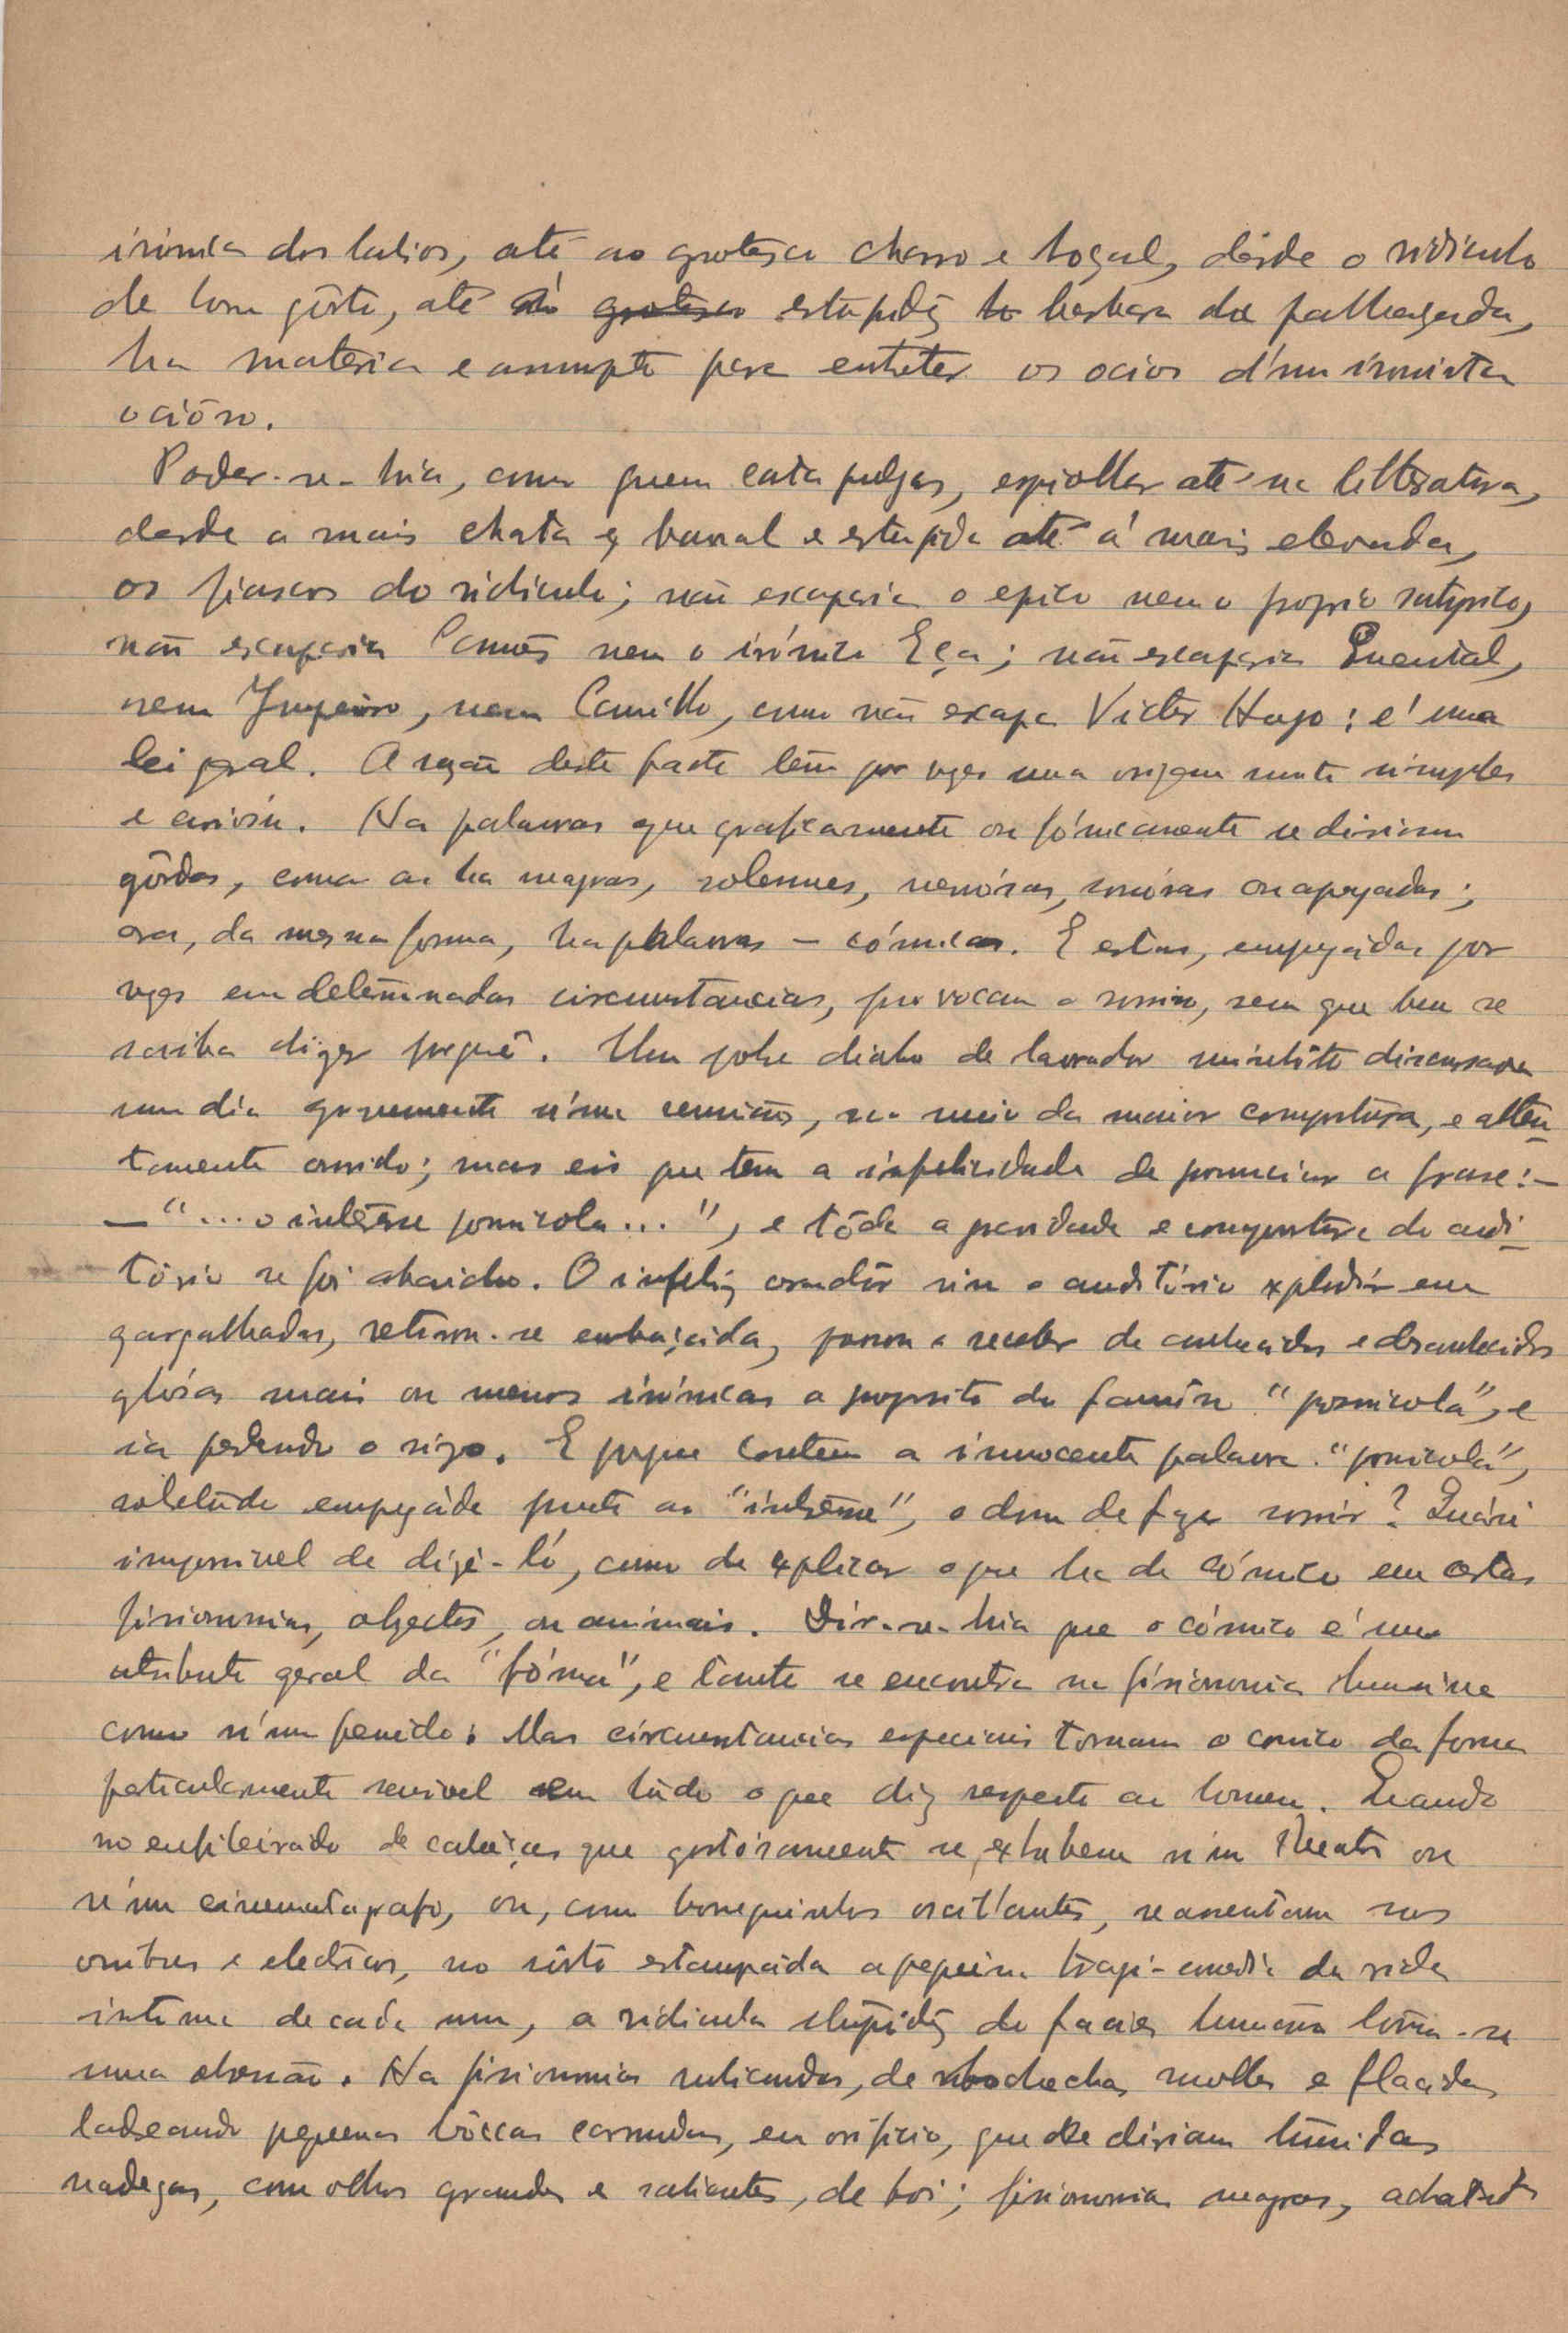 irónica dos labios, até ao grotesco charro e boçal, désde o ridiculo
de bom gôsto, até á estupidez barbara da palhaçada,
ha materia e assumpto para entreter os ocios d'um ironista
ociôso.
Poder-se-hia, como quem cata pulgas, espiolhar até na litteratura,
desde a mais chata e banal e estupida até á mais elevada,
os fiascos do ridiculo; não escaparia o epico nem o proprio satyrico,
não escaparia Camões nem o irónico Eça; não escaparia Quental,
nem Junqueiro, nem Camillo, como não escapa Victor Hugo: é uma
lei geral. A razão deste facto tem por vezes uma origem muito simples
e curiósa. Ha palavras que graficamente ou fónicamente se diriam
gôrdas, como as ha magras, solemnes, sonóras ou apagadas;
ora, da mesma forma, ha palavras — cómicas. E estas, empregádas por
vezes em determinadas circumstancias, provocam o sorriso, sem que bem se
saiba dizer porquê. Um pobre diabo de lavrador minhôto discursava
um dia gravemente n'uma reunião, no meio da maior compostura, e atten-
tamente ouvido; mas eis que tem a infelicidade de pronunciar a frase: —
— "... o interêsse pomicola...", e tôda a gravidade e compostura do audi-
tório se foi abaicho. O infeliz oradôr viu o auditório explodir em
gargalhadas, retirou-se embaçado, passou a receber de conhecidos e desconhecidos
glósas mais ou menos irónicas a proposito do famôso "pomicola", e
ia perdendo o sizo. E porque contem a innocente palavra "pomicola",
sobretudo empregáda junto ao "interêsse", o dom de fazer sorrir? Quási
impossivel de dizê-lo, como de explicar o que ha de cómico em certas
fisionomias, objectos, ou animais. Dir-se-hia que o cómico é um
atributo geral da "fórma", e tanto se encontra na fisionomia humana
como n'um penedo. Mas circumstancias especiais tornam o comico da forma
particularmente sensivel em tudo o que diz respeito ao homem. Quando
no enfileirado de cabeças que gostósamente se exhibem n'um theatro ou
n'um cinematografo, ou, como bonequinhos oscillantes, se assentam nos
omnibus e electricos, no rôsto estampada a pequena tragi-comedia da vida
intima de cada um, a ridicula estupidez do facies humano torna-se
uma obsessão. Ha fisionomias rubicundas, de bochechas molles e flacidas
ladeando pequenas bôccas carnudas, em orificio, que se diriam tumidas
nadegas, com olhos grandes e salientes, de boi; fisionomias magras, achatadas